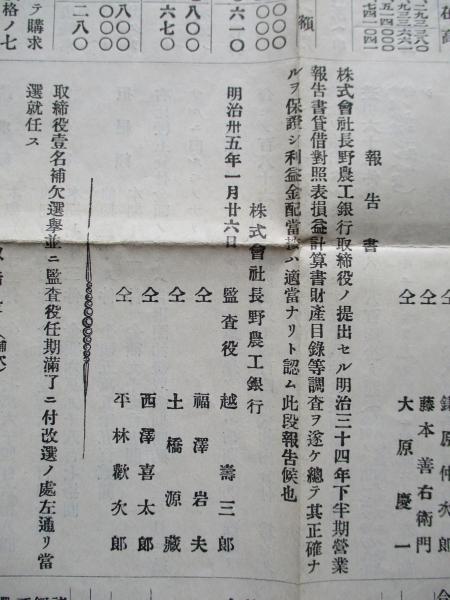 在高
三八〇
額
鎌原仲次郎
仝 藤本善右衛門
仝 大原慶一
報告書
株式會社長野農工銀行取締役ノ提出セル明治三十四年下半期營業
報告書貸借對照表損益計算書財產目錄等調査ヲ遂ケ總テ其正確ナ
ルヲ保證シ利益金配當按ハ適當ナリト認ム此段報告候也
株式會社長野農工銀行
明治卅五年一月廿六日
監査役 越壽三郎
仝 福澤岩夫
仝 土橋源藏
仝 西澤喜太郎
仝 平林歡次郎
取締役壹名補欠選擧並ニ監査役任期滿了ニ付改選ノ處左通リ當
選就任ス
テ購求
格ノ七